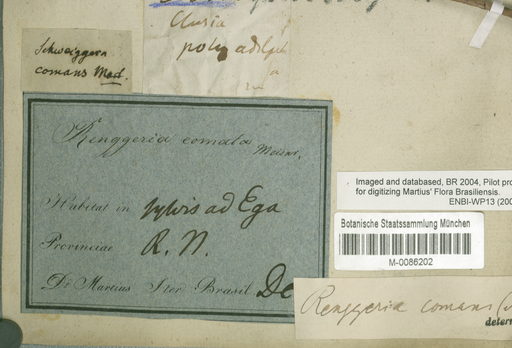 Clusia
polyadelph
Schweiggera
comans Mart.
Renggeria comata
Meisn.
Habitat in sylvis ad Ega
Provinciae R. N.
Dr Martius Iter Brasil. De
Imaged and databased, BR 2004, Pilot pro
for digitizing Martius' Flora Brasiliensis.
ENBI-WP13 (200
Botanische Staatssammlung München
M-0086202
Renggeria comans (
determ